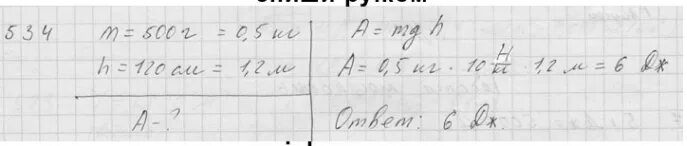 534 m = 500 г = 0,5 кг A = mg h
h = 120 см = 1,2 м A = 0,5 кг · 10 Н/кг · 1,2 м = 6 Дж
A - ? Ответ: 6 Дж.